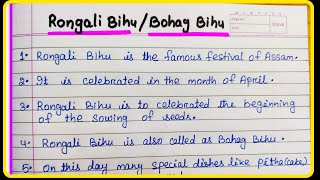 Rongali Bihu/Bohag Bihu
1. Rongali Bihu is the famous festival of Assam.
2. It is celebrated in the month of April.
3. Rongali Bihu is to celebrated the beginning
of the sowing of seeds.
4. Rongali Bihu is also called as Bohag Bihu.
5. On this day many special dishes like pitha(cake)